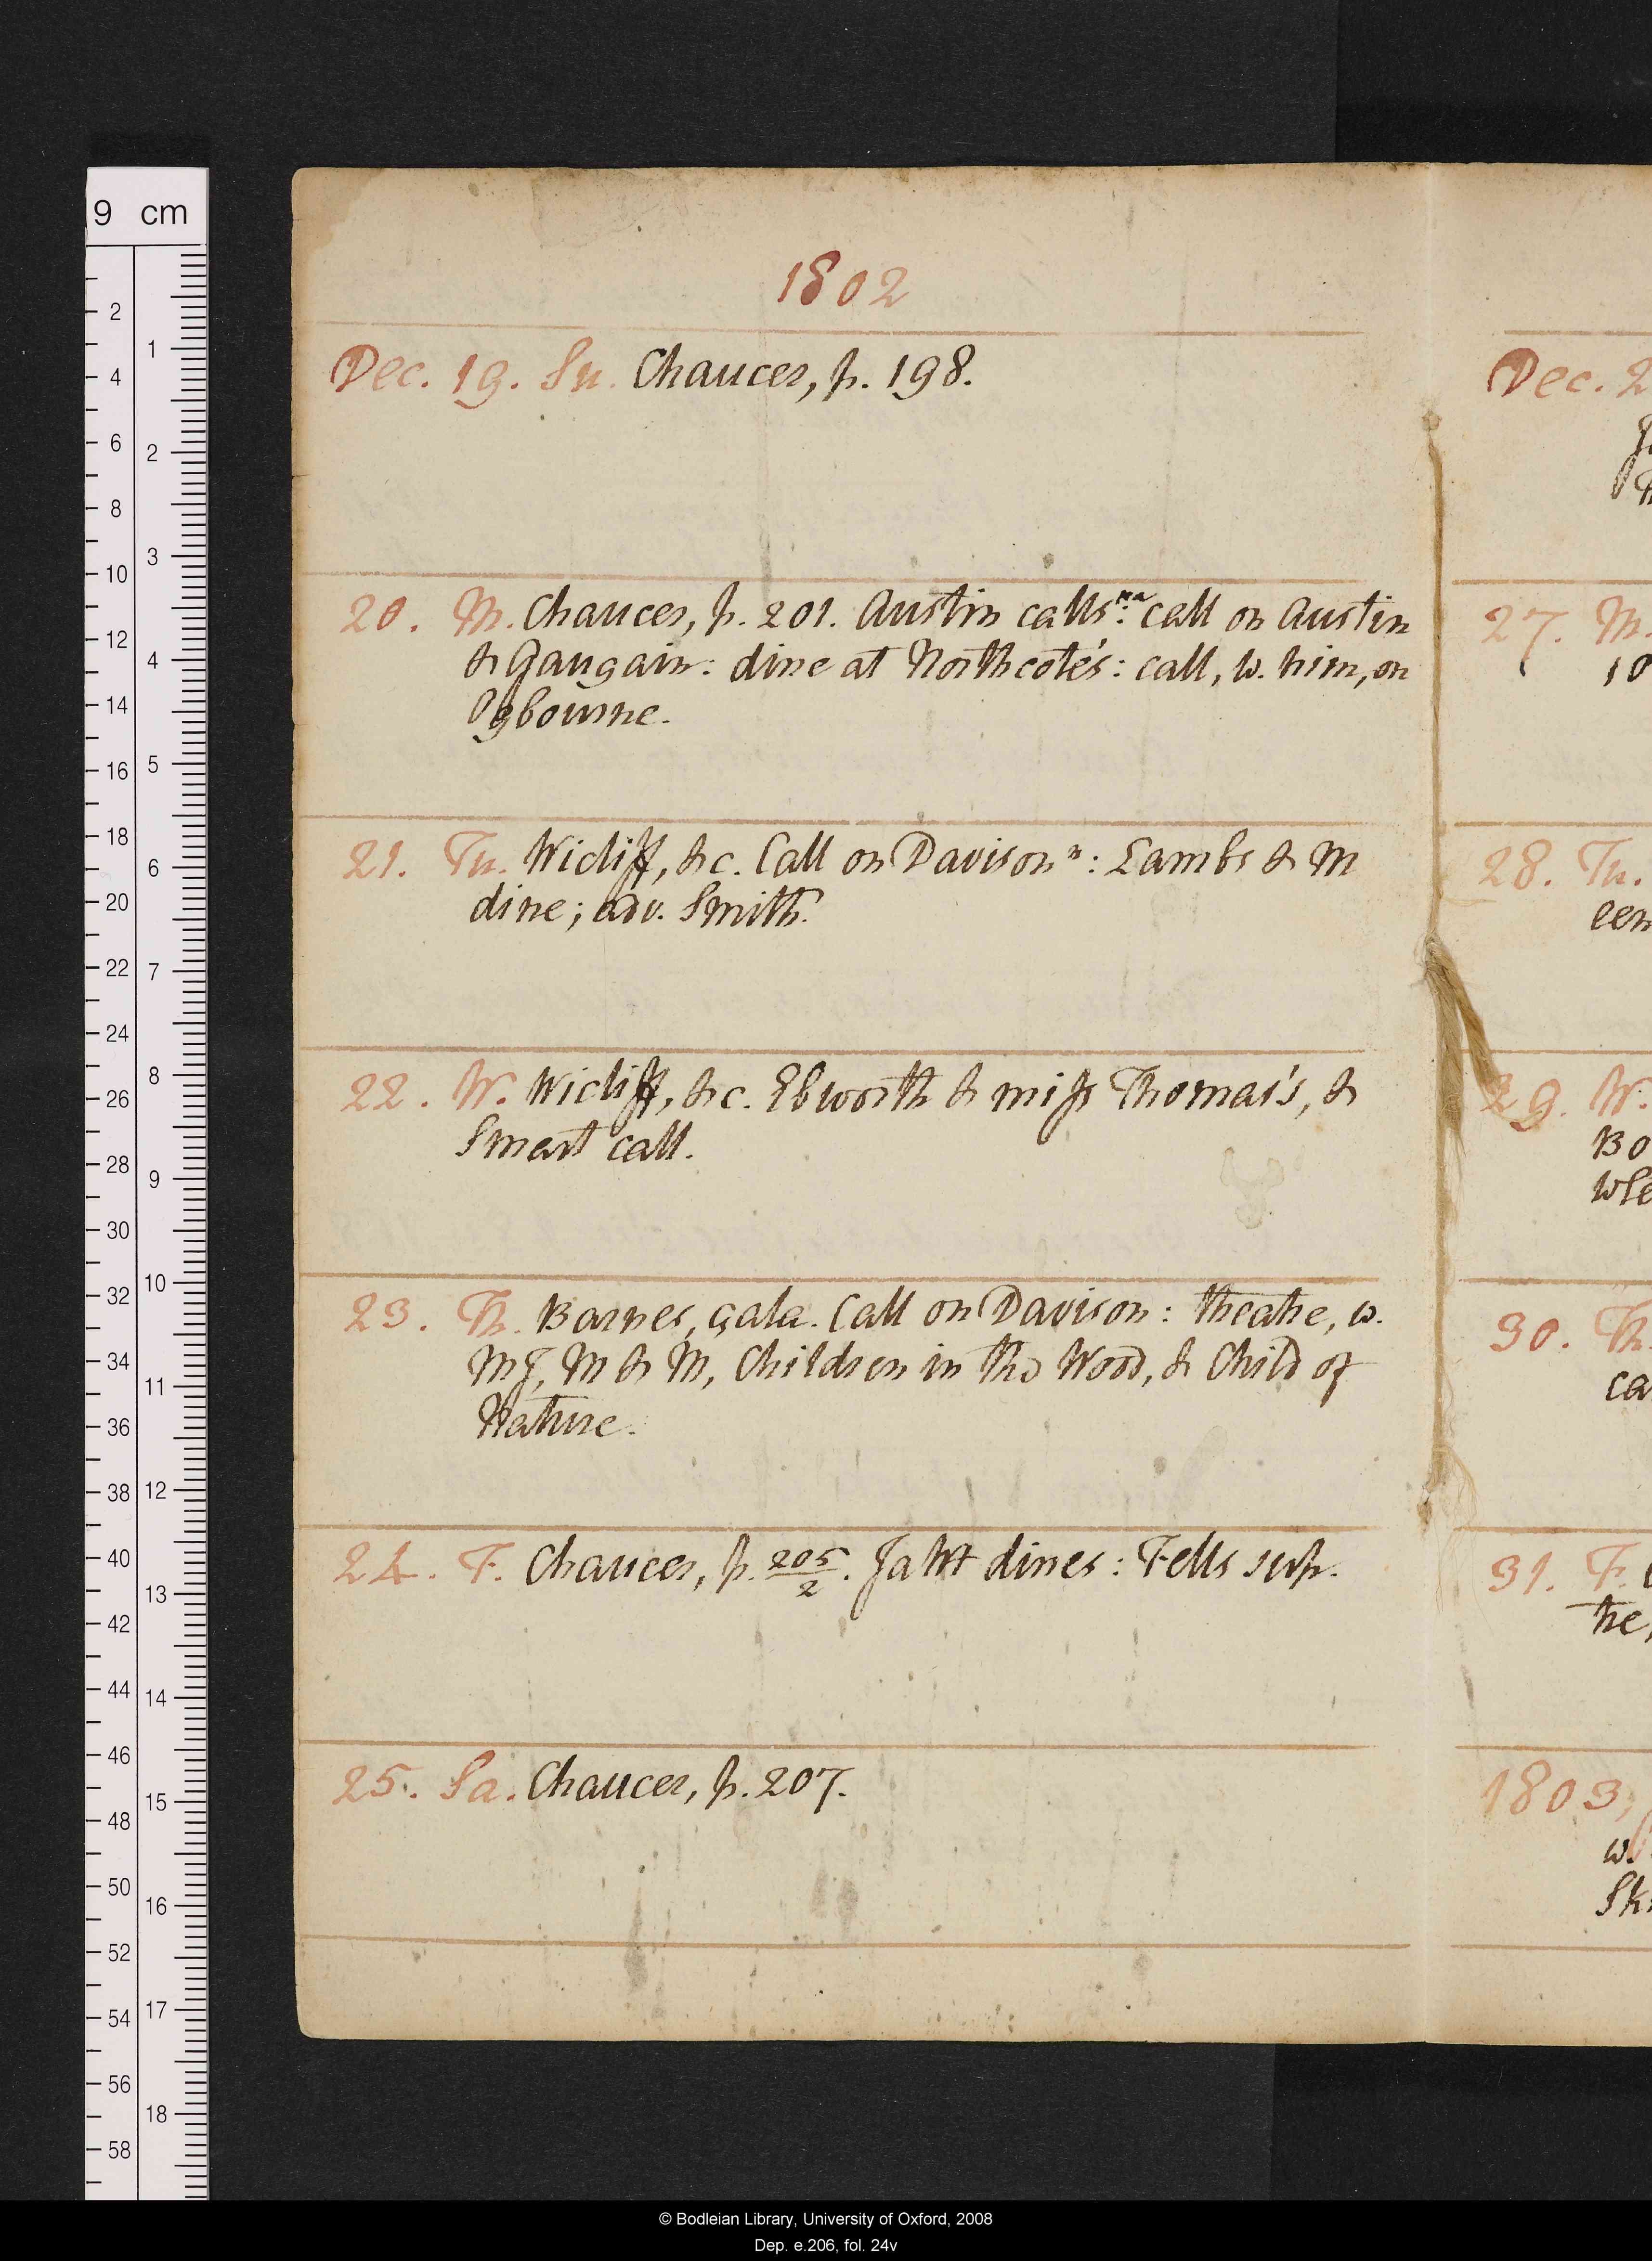 1802
Dec. 19. Su. Chaucer, p. 198.
20. M. Chaucer, p. 201. Austin calls na: call on Austin
& Gaugain: dine at Northcote's: call, w. him, on
Ogbourne.
21. Tu. Wicliff, &c. Call on Davison n: Lambs & M
dine; adv. Smith.
22. W. Wicliff, &c. Ebworth & miss Thomas's, &
Smart call.
23. Th. Barnes, gala. Call on Davison: theatre, w.
MJ, M & M, Children in the Wood, & Child of
Nature.
24. F. Chaucer, p. 205/2. Ja Wt dines: Fells sup.
25. Sa. Chaucer, p. 207.
Dec. 2
27. M.
10
28. Tu.
29. W.
Bo
30. Th.
ca
31. F.
he,
1803,
w.
9 cm
2
4
6
8
10
12
14
16
18
20
22
24
26
28
30
32
34
36
38
40
42
44
46
48
50
52
54
56
58
1
2
3
4
5
6
7
8
9
10
11
12
13
14
15
16
17
18
© Bodleian Library, University of Oxford, 2008
Dep. e.206, fol. 24v